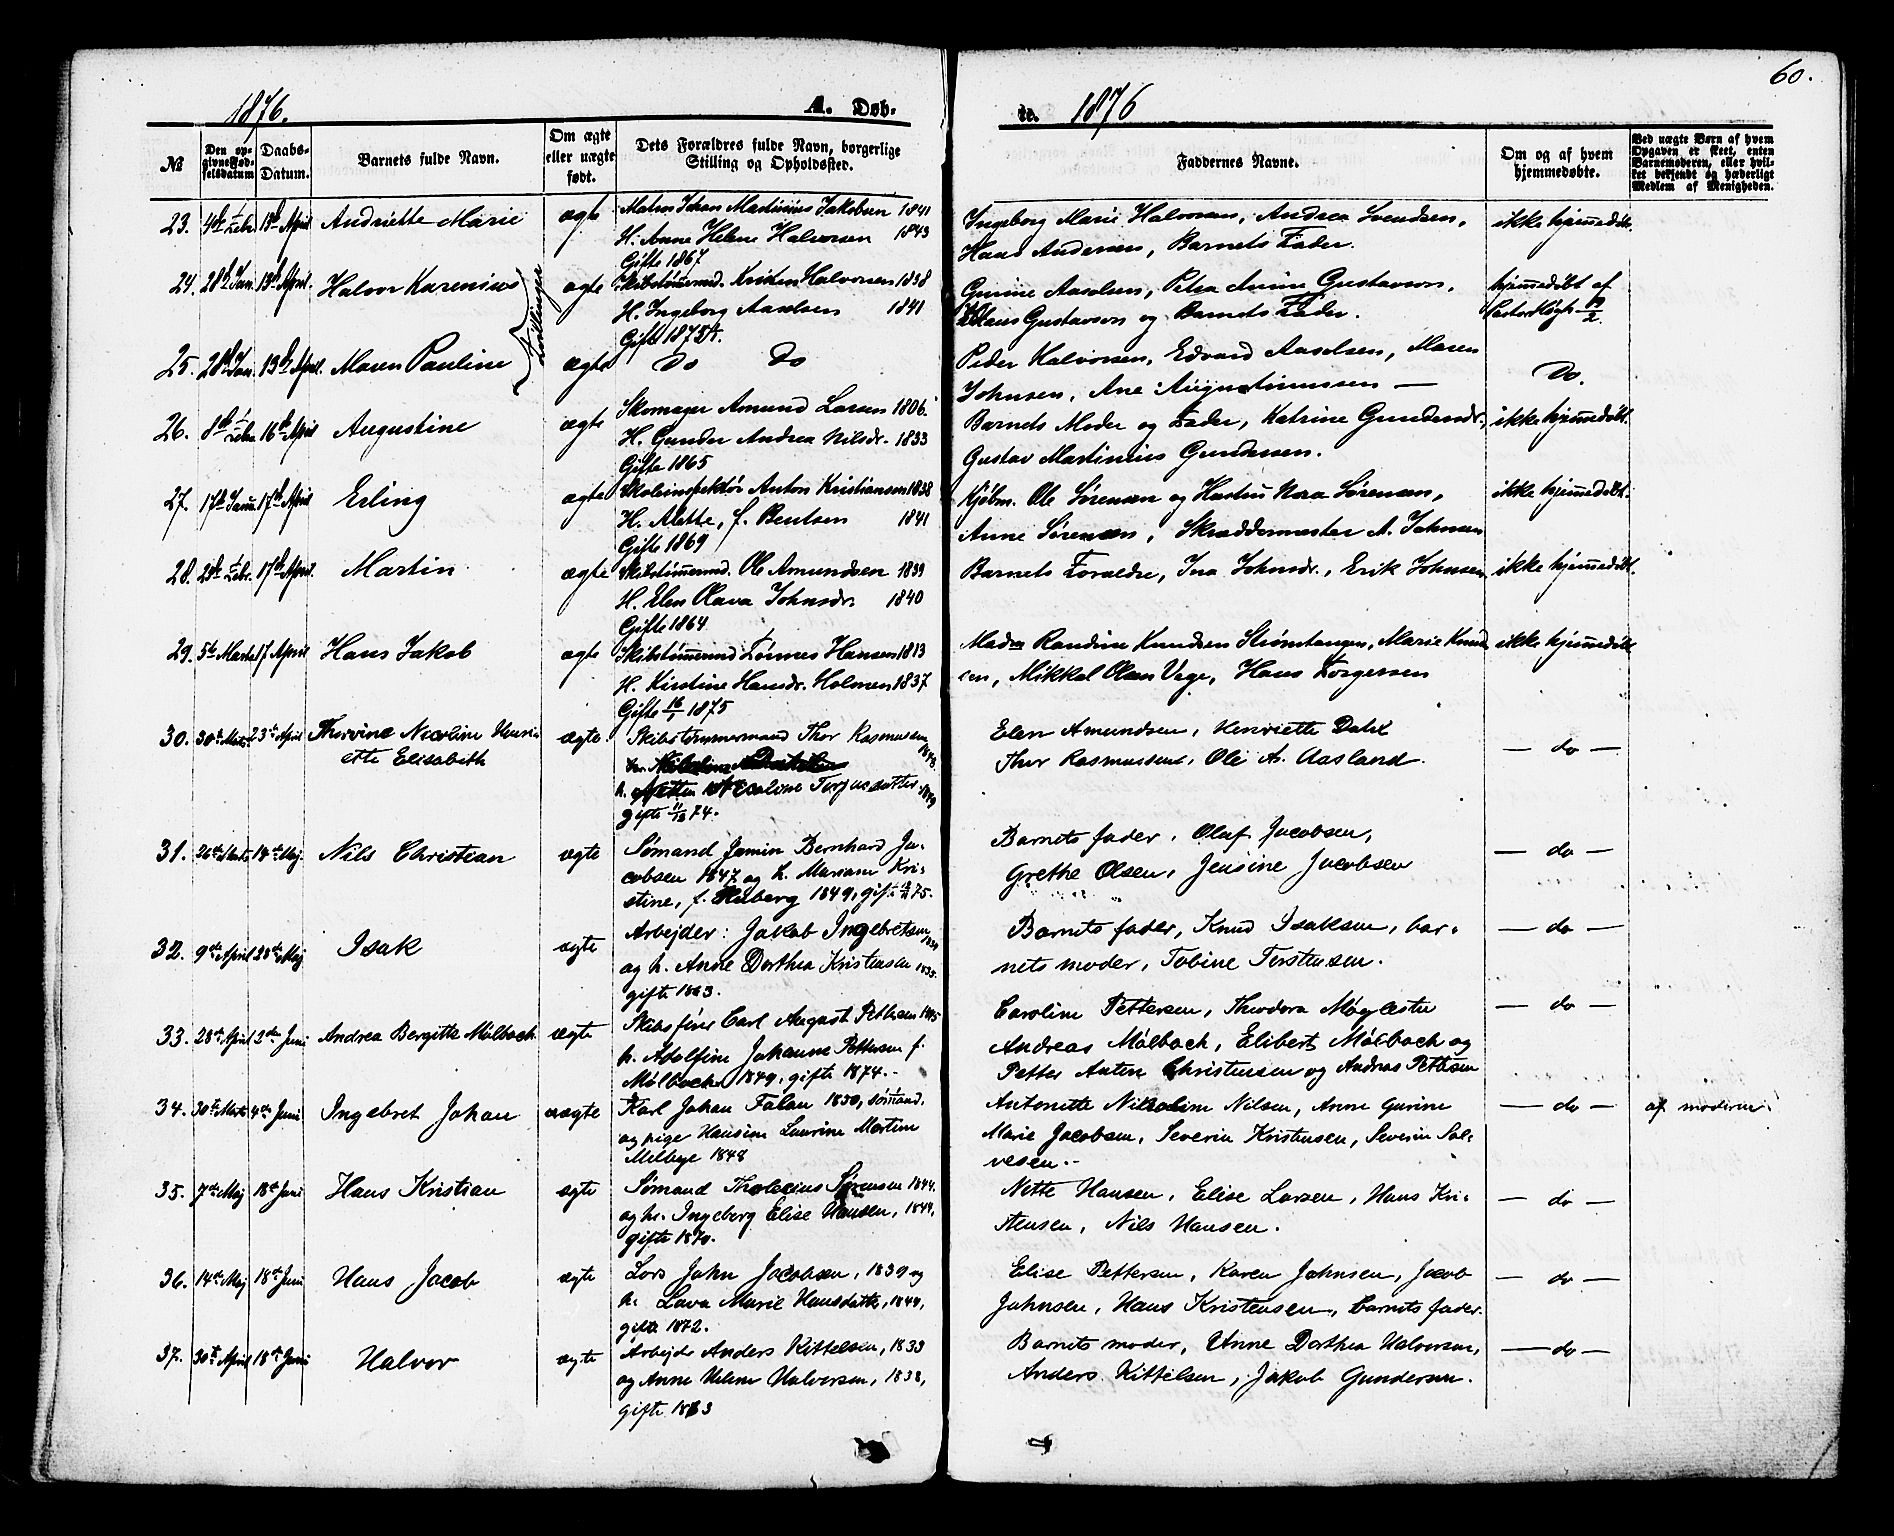 1876. A. Døb-
te. 1876
60.
№
Den opgivne Fødselsdatum
Daabs-Datum.
Barnets fulde Navn.
Om ægte eller uægte født.
Dets Forældres fulde Navn, borgerlige Stilling og Opholdssted.
Faddernes Navne.
Om og af hvem hjemmedøbte.
Ved uægte Børn af hvem Opgaven er skeet, enten Barnemoderen, eller hvilket bekjendt og hæderligt Medlem af Menigheden.
23. 4de Febr. 13de April Andriette Marie ægte Matros Johan Martinius Jakobsen 1841
H. Anne Helene Halvorsen 1843
Gifte 1867
Ingeborg Marie Halvorsen, Andrea Svendsen,
Hans Andersen, Barnets Fader.
ikke hjemmedøbt.
24. 28de Jan. 13de April. Halvor Karenius ægte Skibstømmermd. Kristen Halvorsen 1838
H. Ingeborg Aaselsen 1841
Gifte 1875
Tvillinger
Gurine Aaselsen, Petra Anine Gustavson,
Klaus Gustavson og Barnets Fader.
hjemmedøbt af
Pastor Høgh
25. 28de Jan. 13de April. Maren Pauline ægte Do Do
Peder Halvorsen, Edvard Aaselsen, Maren
Johnsen, Ane Augustinussen —
Do.
26. 8de Febr. 16de April Augustine ægte Skomager Amund Larsen 1806.
H. Gunder Andrea Nilsdr. 1833
Gifte 1865
Barnets Moder og Fader, Katrine Gundersdr.,
Gustav Martinius Gundersen.
ikke hjemmedøbt.
27. 17de Janu. 17de April Erling ægte Skoleinspektør Anton Kristiansen 1838
H. Alette, f. Bentsen 1841
Gifte 1869
Kjøbm. Ole Sørensen og Hustru Nora Sørensen,
Anne Sørensen, Skræddermester A. Johnsen
ikke hjemmedøbt.
28. Febr. 17de April. Martin ægte Skibstømmermd. Ole Amundsen 1839
H. Elen Olava Johnsdr. 1840
Gifte 1864
Barnets Forældre, Ina Johnsdr., Erik Johnsen
ikke hjemmedøbt.
29. 5te Marts 17 April Hans Jakob ægte Skibstømmermd Tønnes Hansen 1813
H. Kirstine Hansdr. Holmen 1837
Gifte 16/1 1875
Mad Randine Knudsen Strømtangen, Marie Knud
sen, Mikkel Olsen Vege, Hans Torgersen
ikke hjemmedøbt
30. 30te Marts 23de April Thorvine Nicoline Henri
ette Elisabeth
ægte Skibstømmermand Thor Rasmussen 1848.
h. Nicoline Terjesdatter 1849
gifte 11/12 74.
Elen Amundsen, Henriette Dahl
Thor Rasmussen, Ole A. Aasland.
— do —
31. 26de Marts 14de Maj. Nils Christian ægte Sømand Jamin Bernhard Ja-
cobsen 1847 og h. Mariane Kri-
stine, f. 1849, gift 75.
Barnets fader, Olaf Jacobsen,
Grethe Olsen, Jensine Jacobsen
— do —
32. 9de April 28de Maj Isak ægte Arbejder: Jakob Ingebretsen
og h. Anne Dorthea Kristensen 1835.
gifte 1863.
Barnets fader, Knud Isaksen, bar-
nets moder, Tobine Terstensen.
— do —
33. 28de April 2den Juni Andrea Bergitte Mølbach ægte Skibsfører Carl August Pettersen 1845
h. Adolfine Johanne Pettersen f.
Mølbach 1849, gifte 1874.
Caroline Pettersen, Theodora Møglestu
Andreas Mølbach, Elibert Mølbach og
Petter Anton Christensen og Andreas Pettersen
— do —
34. 30te Marts 4de Juni Ingebret Johan uægte Karl Johan Falan 1850, sømand.
og pige Hansine Laurine Martine
Melbye 1848
Antonette Nikoline Nilsen, Anne Gurine
Marie Jacobsen, Severin Kristensen, Severin Sal-
vesen.
— do — af moderen.
35. 7de Maj 18de Juni Hans Kristian ægte Sømand Sørensen 1844.
og h. Ingeborg Elise Hansen, 1849,
gifte 1870.
Nette Hansen, Elise Larsen, Hans Kri-
stensen, Nils Hansen.
— do —
36. 14de Maj 18de Juni Hans Jacob ægte Lods John Jacobsen, 1839 og
h. Lava Marie Hansdatter, 1849,
gifte 1872.
Elise Pettersen, Karen Johnsen, Jacob
Johnsen, Hans Kristensen, barnets fader.
— do —
37. 30te April 18de Juni Halvor ægte Arbejdr Anders Kittelsen, 1833
og Anne Helene Halvorsen, 1838,
gifte 1863
Barnets moder, Anne Dorthea Halvorsen,
Anders Kittelsen, Jakob Gundersen.
— do —